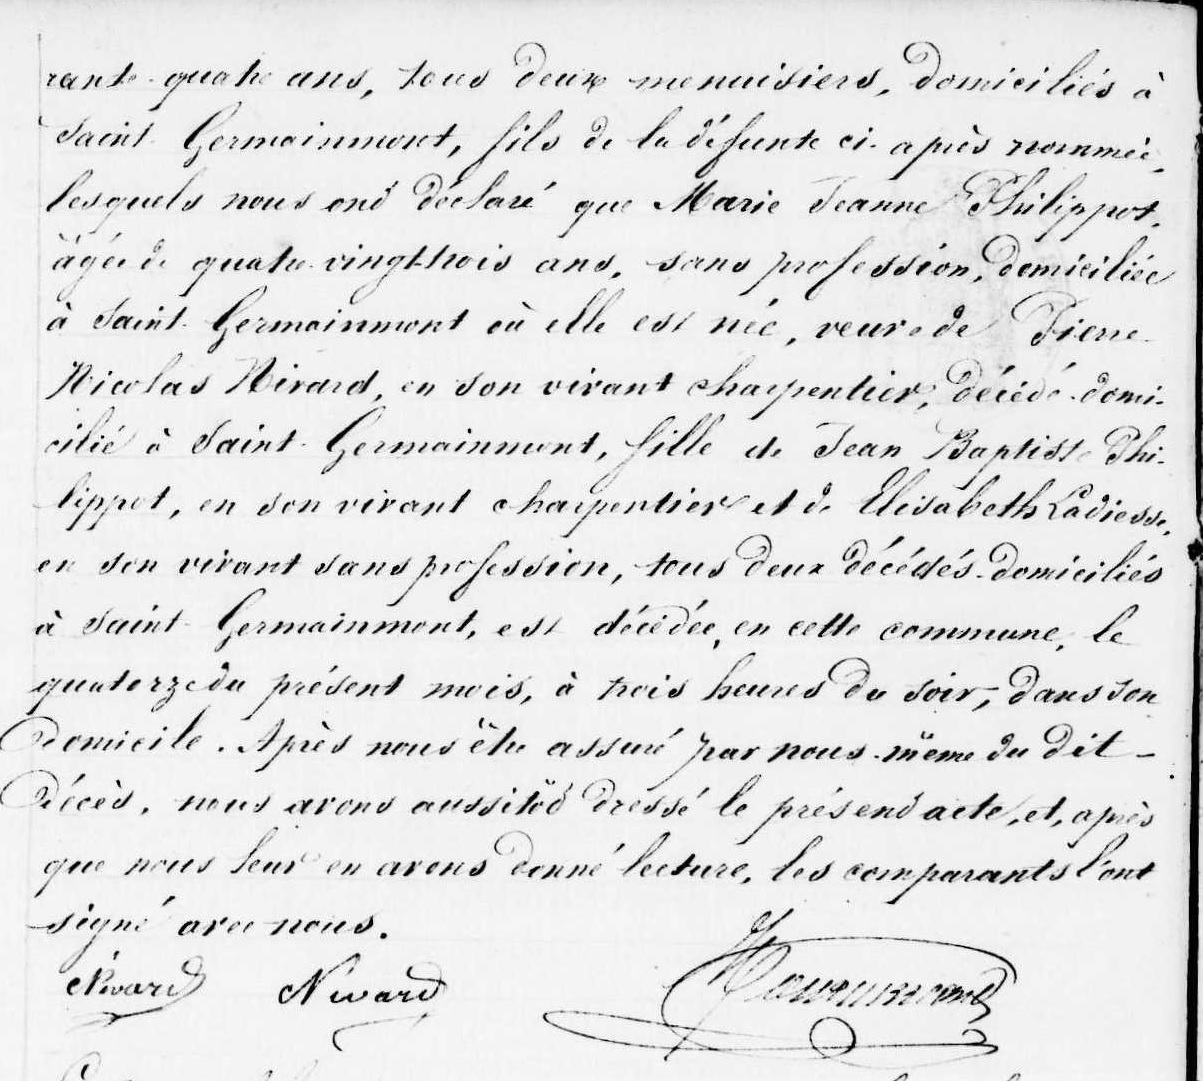 rante-quatre ans, tous deux menuisiers, domiciliés à
Saint-Germainmont, fils de la défunte ci-après nommée,
lesquels nous ont déclaré que Marie Jeanne Philippot,
âgée de quatre-vingt-trois ans, sans profession, domiciliée
à Saint-Germainmont où elle est née, veuve de Pierre-
Nicolas Nivard, en son vivant charpentier, décédé-domi-
cilié à Saint-Germainmont, fille de Jean Baptiste Phi-
lippot, en son vivant charpentier et de Elisabeth Ladiesse,
en son vivant sans profession, tous deux décédés-domiciliés
à Saint-Germainmont, est décédée, en cette commune, le
quatorze du présent mois, à trois heures du soir, dans son
domicile. Après nous être assuré par nous-même du dit-
décès, nous avons aussitôt dressé le présent acte, et, après
que nous leur en avons donné lecture, les comparants l'ont
signé avec nous.
Nivard Nivard